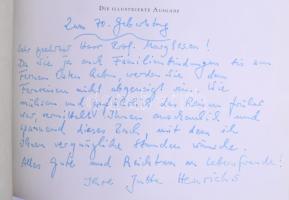 DIE ILLUSTRIERTE AUSGABE
Zum 70. Geburtstag
Sehr geehrter Herr Prof.
Da Sie ja auch Familienbindungen bis zum
Fernen Osten haben, werden Sie dem
Fernreisen nicht abgeneigt sein. Wie
mühsam und gefährlich das Reisen früher
war, vermittelt Ihnen anschaulich und
spannend dieses Buch, mit dem ich
Ihnen vergnügliche Stunden wünsche.
Alles Gute und Reichtum an Lebensfreude!
Ihre Jutta Henrichs